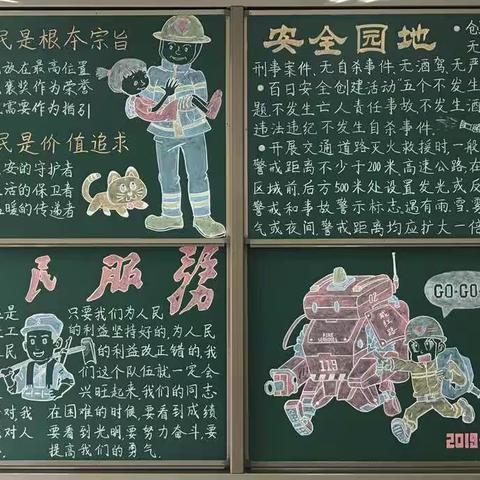 民是根本宗旨
放在最高位置
褒奖作为荣誉
需要作为指引
民是价值追求
安的守护者
活的保卫者
暖的传递者
安全园地
创
无
刑事案件、无自杀事件、无酒驾、无严
百日安全创建活动“五个不发生
题、不发生亡人责任事故、不发生酒
违法违纪、不发生自杀事件。
开展交通道路灭火救援时，一般
警戒距离不少于200米，高速公路在
区域前、后方500米处设置发光或反
警戒和事故警示标志，遇有雨、雪、雾
气或夜间警戒距离均应扩大一倍
民服務
是 只要我们为人民
工 的利益坚持好的，为人民
民 的利益改正错的，我
们这个队伍就一定会
兴旺起来，我们的同志
对我 在困难的时候，要看到成绩
对人 要看到光明，要努力奋斗，要
提高我们的勇气。
GO-GO-
FIRE
119
2019